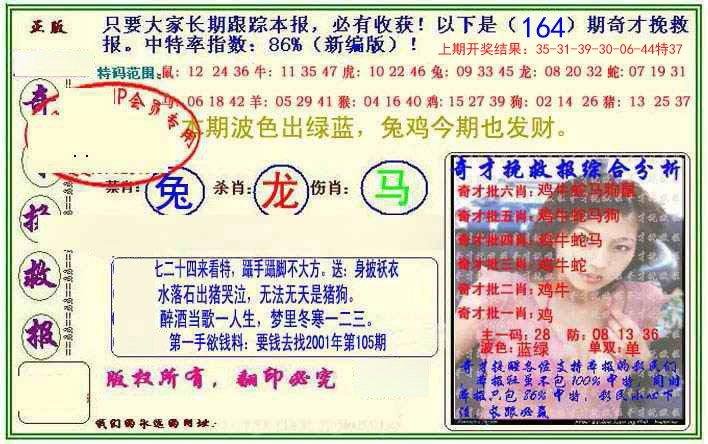 正版
只要大家长期跟踪本报，必有收获！以下是（164）期奇才挽救
报。中特率指数：86%（新编版）！
上期开奖结果：35-31-39-30-06-44特37
特码范围:鼠：12 24 36 牛：11 35 47 虎：10 22 46 兔：09 33 45 龙：08 20 32 蛇：07 19 31
马：06 18 42 羊：05 29 41 猴：04 16 40 鸡：15 27 39 狗：02 14 26 猪：13 25 37
P会员专用
本期波色出绿蓝，兔鸡今期也发财。
禁肖：兔 杀肖：龙 伤肖：马
奇
救
报
七二十四来看特，蹑手蹑脚不大方。送：身披袄衣
水落石出猪哭泣，无法无天是猪狗。
醉酒当歌一人生，梦里冬寒一二三。
第一手欲钱料：要钱去找2001年第105期
版权所有，翻印必究
我们的永远的网址:
奇才挽救报综合分析
奇才批六肖：鸡牛蛇马狗鼠
奇才批五肖：鸡牛蛇马狗
奇才批四肖：鸡牛蛇马
奇才批三肖：鸡牛蛇
奇才批二肖：鸡牛
奇才批一肖：鸡
主一码：28 防：08 13 36
波色：蓝绿 单双：单
奇才提醒各位支持本报的彩民们
本报担虽不包100%中特，同时
本报只包86%中特，彩民小心下
注，长跟必赢